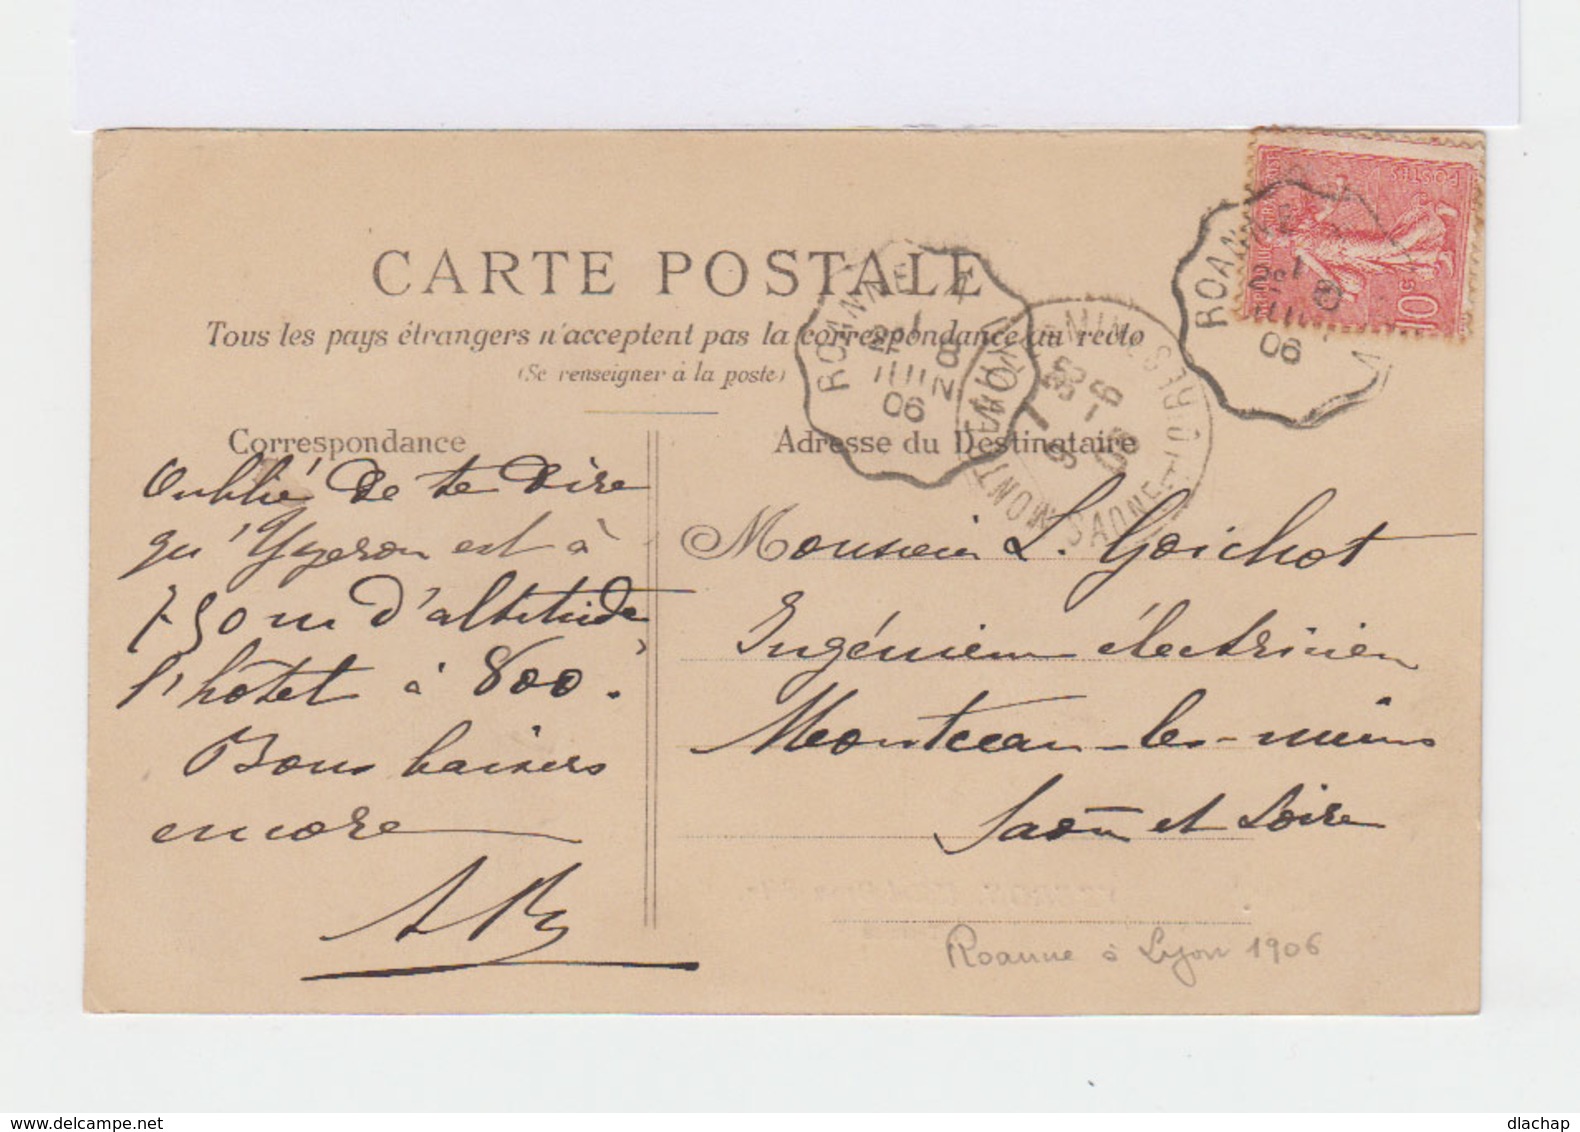 CARTE POSTALE
Tous les pays étrangers n'acceptent pas la correspondance au recto
(Se renseigner à la poste)
Correspondance
Adresse du Destinataire
Oublié de te dire
qu'Yzeron est à
750 m d'altitude
l'hôtel à 800.
Bons baisers
encore
Monsieur L. Goichot
Ingénieur électricien
Montceau-les-mines
Saône et Loire
Roanne à Lyon 1906
ROANNE A LYON
8
JUIN
06
MONTCEAU-LES-MINES
SAONE-ET-LOIRE
ROANNE
8
06
POSTES
10
delcampe.net
dlachap